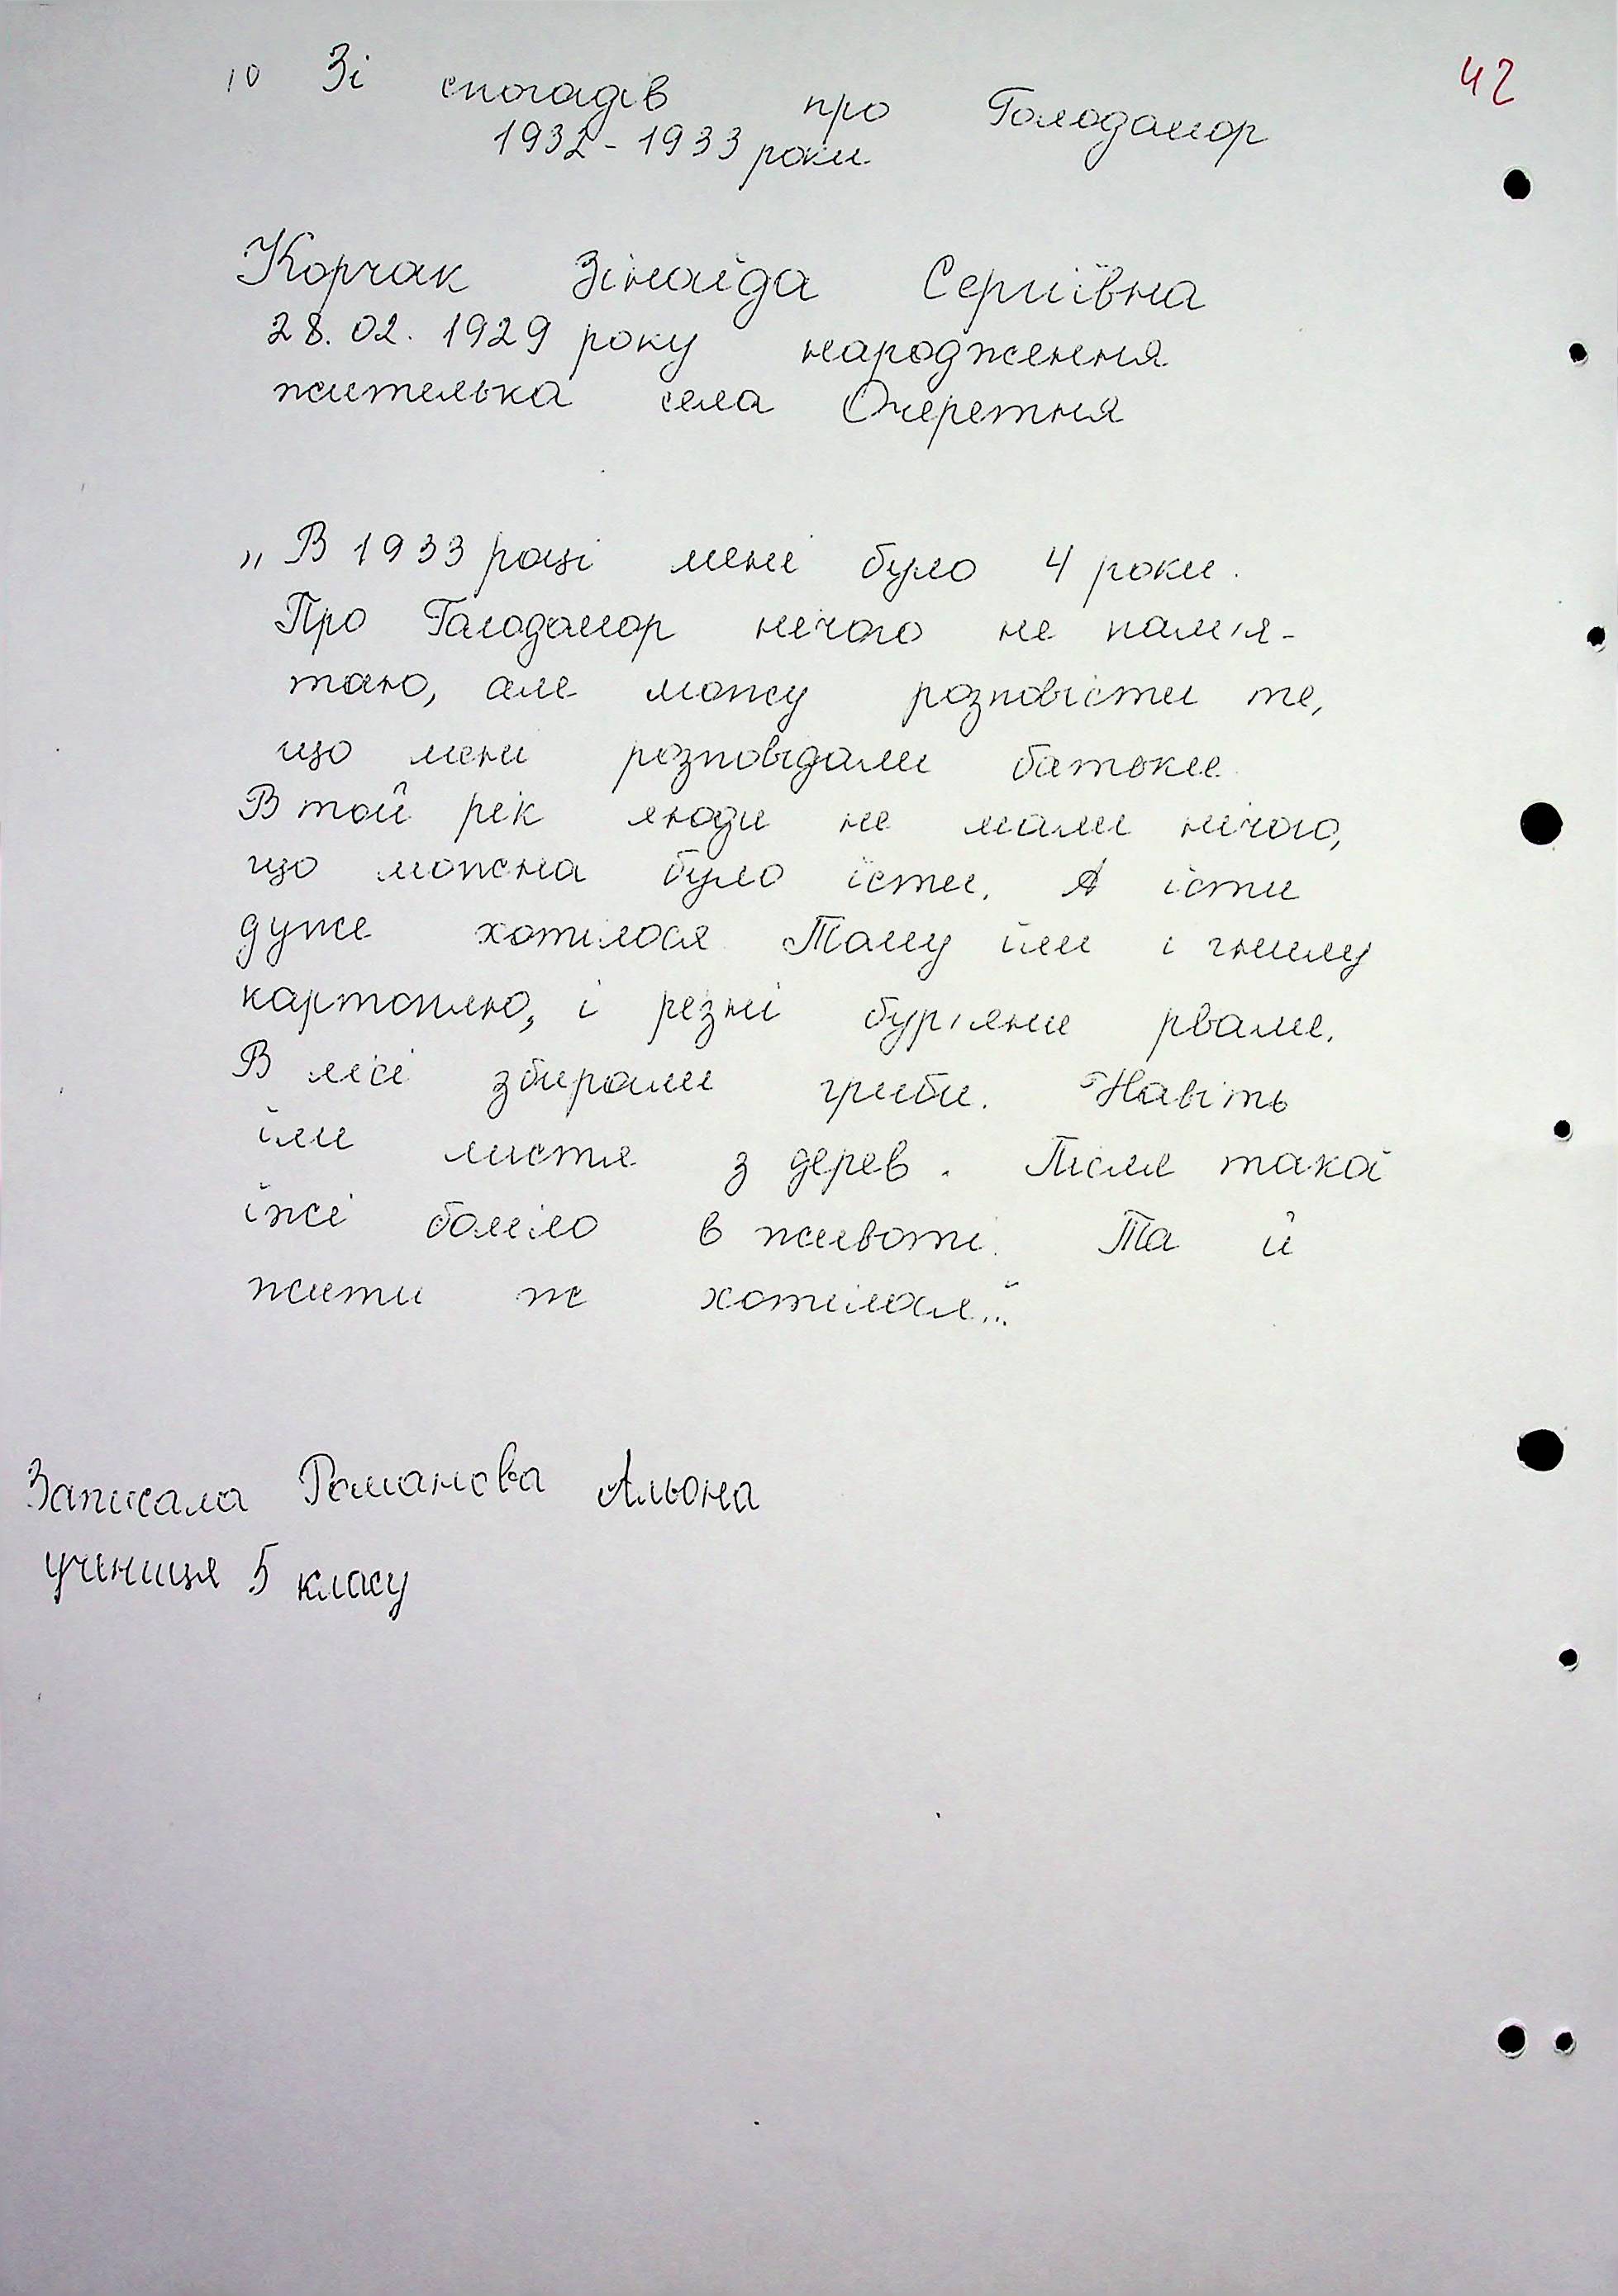 10 Зі спогадів про Голодомор 42
1932-1933 роки
Корчак Зінаїда Сергіївна
28.02.1929 року народження
жителька села Очеретня
„В 1933 році мені було 4 роки.
Про Голодомор нічого не пам'я-
таю, але можу розповісти те,
що мені розповідали батьки.
В той рік люди не мали нічого,
що можна було їсти. А їсти
дуже хотілося. Тому їли і гнилу
картоплю, і різні бур'яни рвали.
В лісі збирали гриби. Навіть
їли листя з дерев. Після такої
їжі боліло в животі. Та й
жити ж хотілося..."
Записала Романова Альона
учениця 5 класу